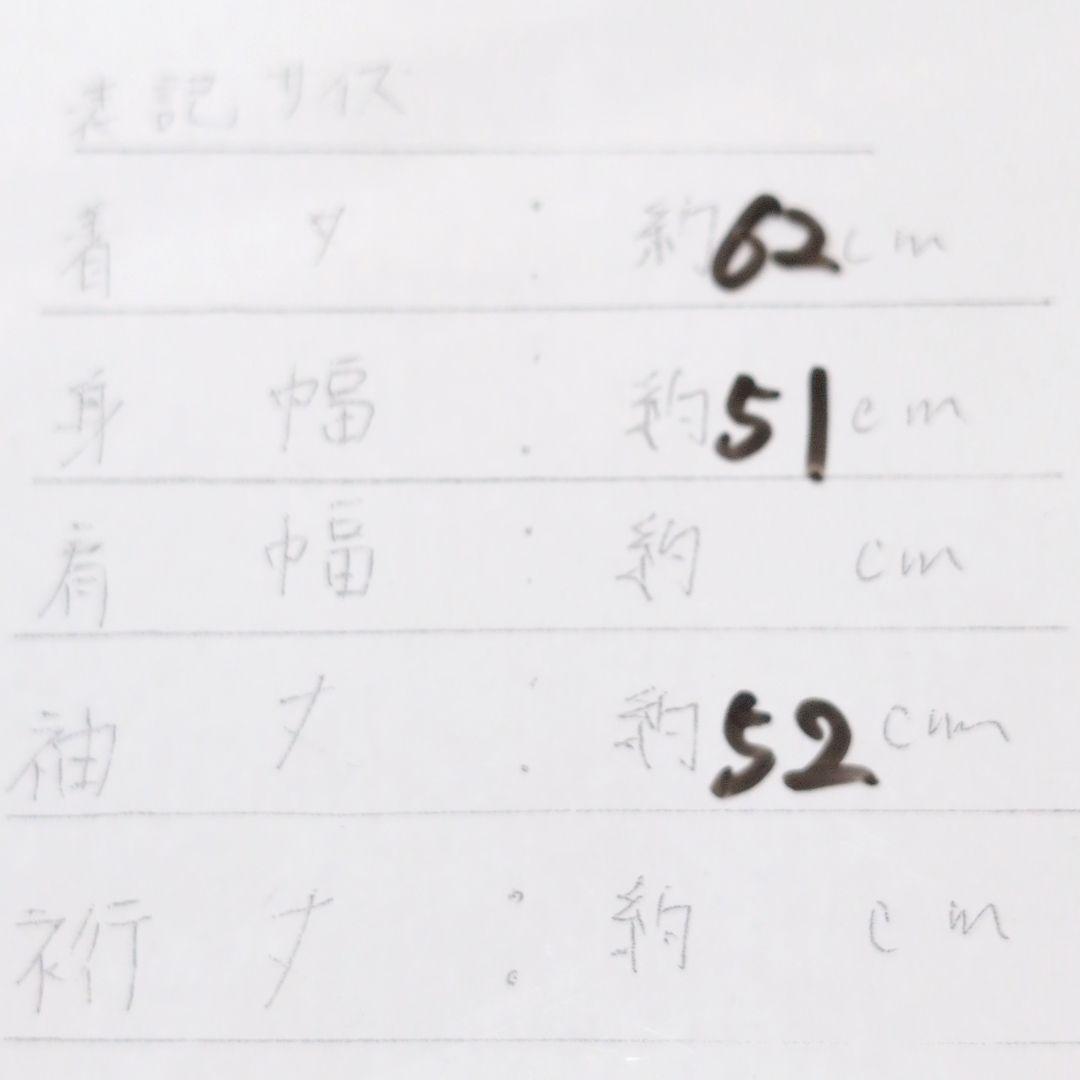 表記サイズ
着丈:約62cm
身幅:約51cm
肩幅:約 cm
袖丈:約52cm
裄丈:約 cm